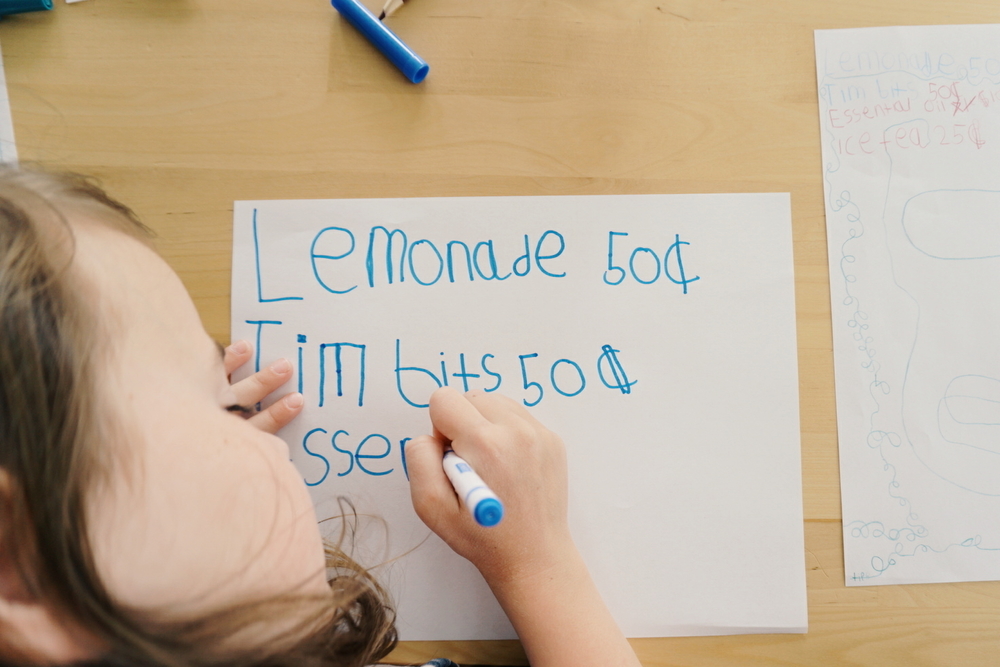 Lemonade 50¢
Tim bits 50¢
ssen
Lemonade 50
Tim bits 50¢
Essental
Ice tea 25¢